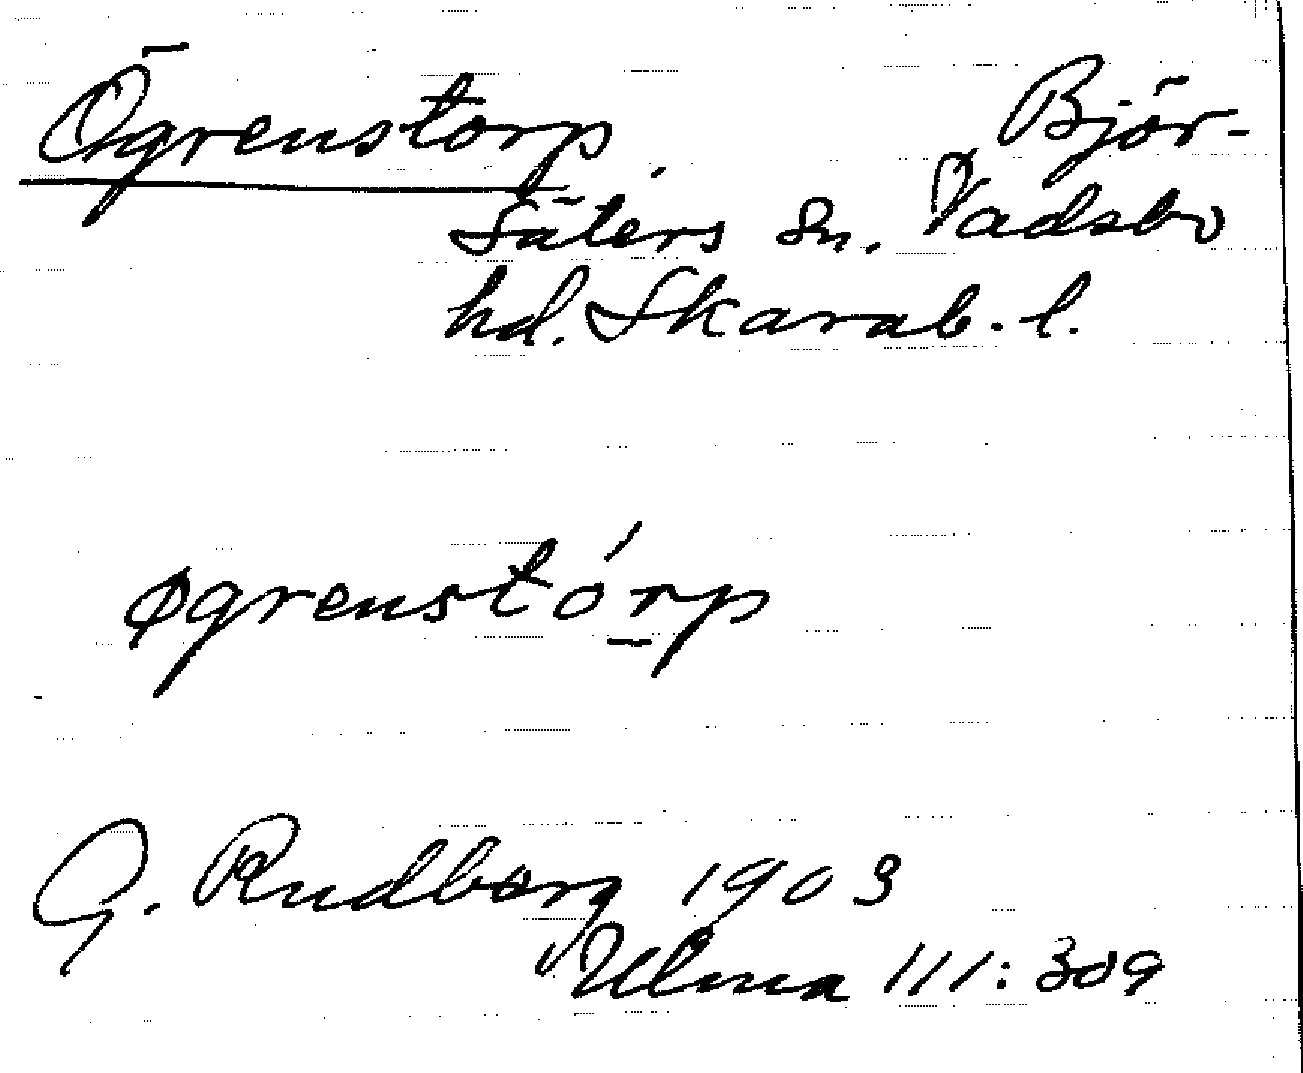 Ögrenstorp Björ-
säters sn. Vadsbo
hd. Skarab. l.
øgrenstórp
G. Rudberg 1903
Ulma 111: 309